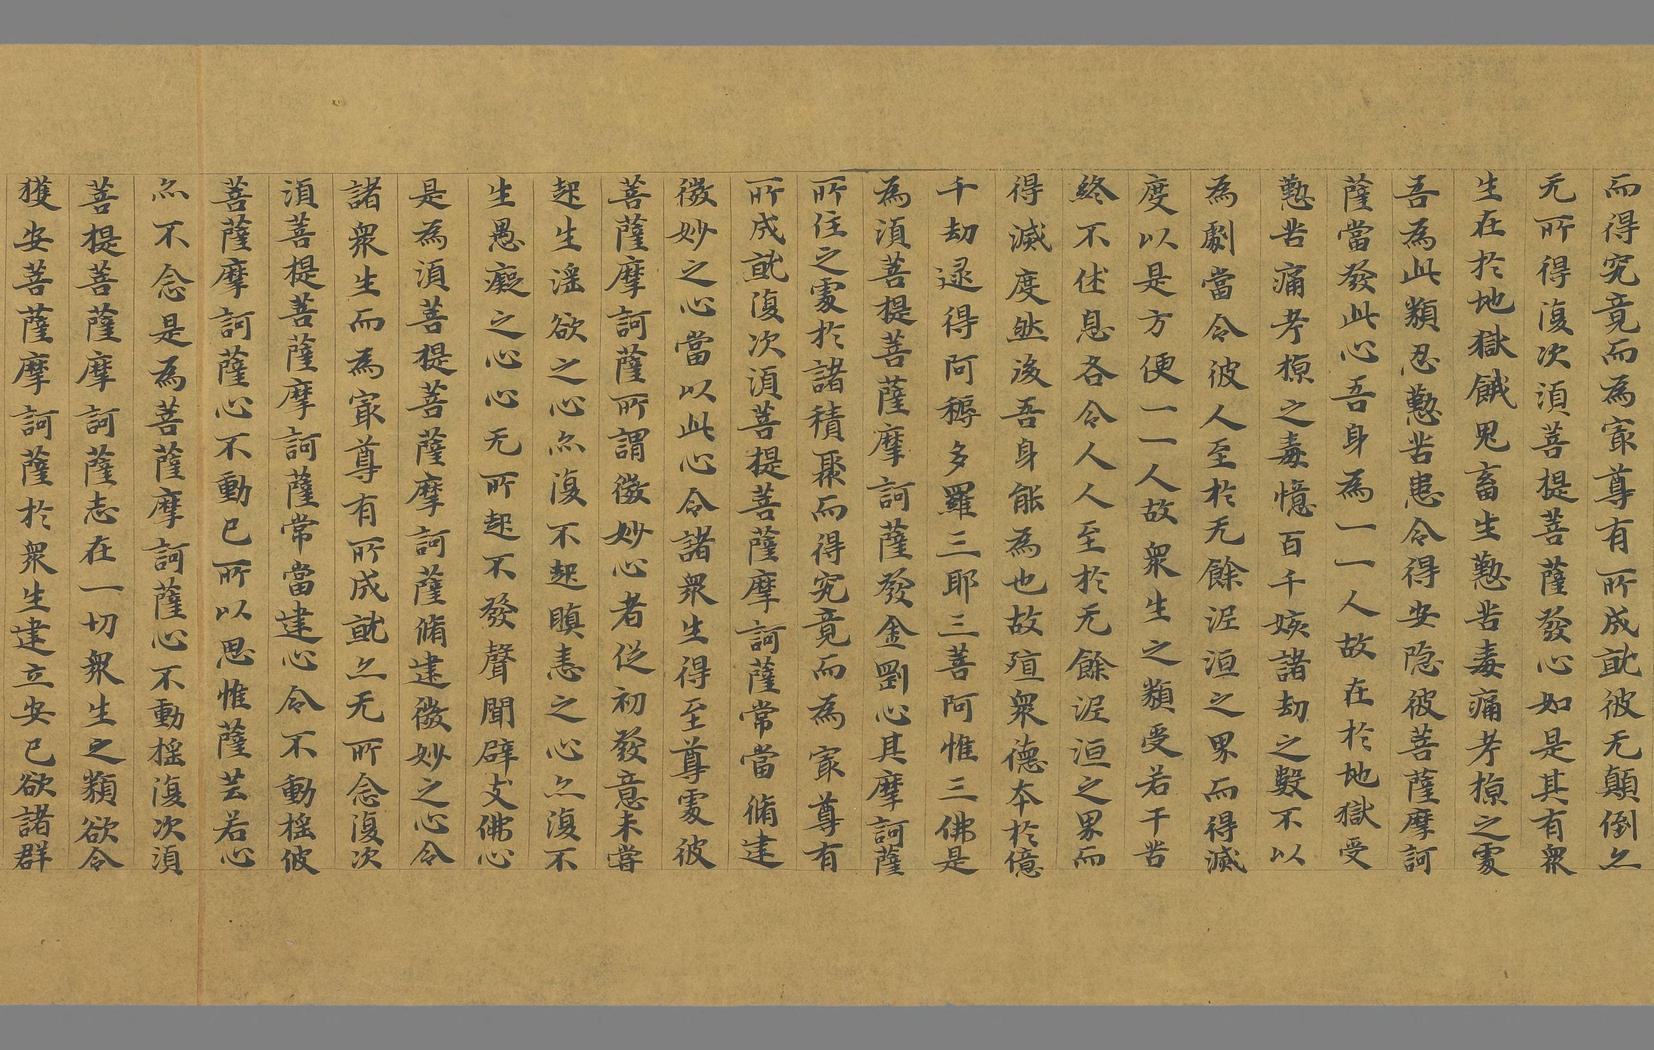 而得究竟而為冣尊有所成就彼无顛倒亦
无所得復次湏菩提菩薩發心如是其有衆
生在於地獄餓鬼畜生懃苦毒痛考掠之處
吾為此類忍懃苦患令得安隱彼菩薩摩訶
薩當發此心吾身為一一人故在於地獄受
懃苦痛考掠之毒憶百千姟諸劫之數不以
為劇當令彼人至於无餘泥洹之界而得滅
度以是方便一一人故衆生之類受若干苦
終不休息各令人人至於无餘泥洹之界而
得滅度然後吾身能為也故殖衆德本於億
千劫逮得阿耨多羅三耶三菩阿惟三佛是
為湏菩提菩薩摩訶薩發金剛心其摩訶薩
所住之處於諸積聚而得究竟而為冣尊有
所成就復次湏菩提菩薩摩訶薩常當脩建
微妙之心當以此心令諸衆生得至尊處彼
菩薩摩訶薩所謂微妙心者從初發意未甞
起生淫欲之心亦復不起瞋恚之心亦復不
生愚癡之心心无所起不發聲聞辟支佛心
是為湏菩提菩薩摩訶薩脩建微妙之心令
諸衆生而為冣尊有所成就亦无所念復次
湏菩提菩薩摩訶薩常當建心令不動搖彼
菩薩摩訶薩心不動已所以思惟薩芸若心
亦不念是為菩薩摩訶薩心不動搖復次湏
菩提菩薩摩訶薩志在一切衆生之類欲令
獲安菩薩摩訶薩於衆生建立安已欲諸群